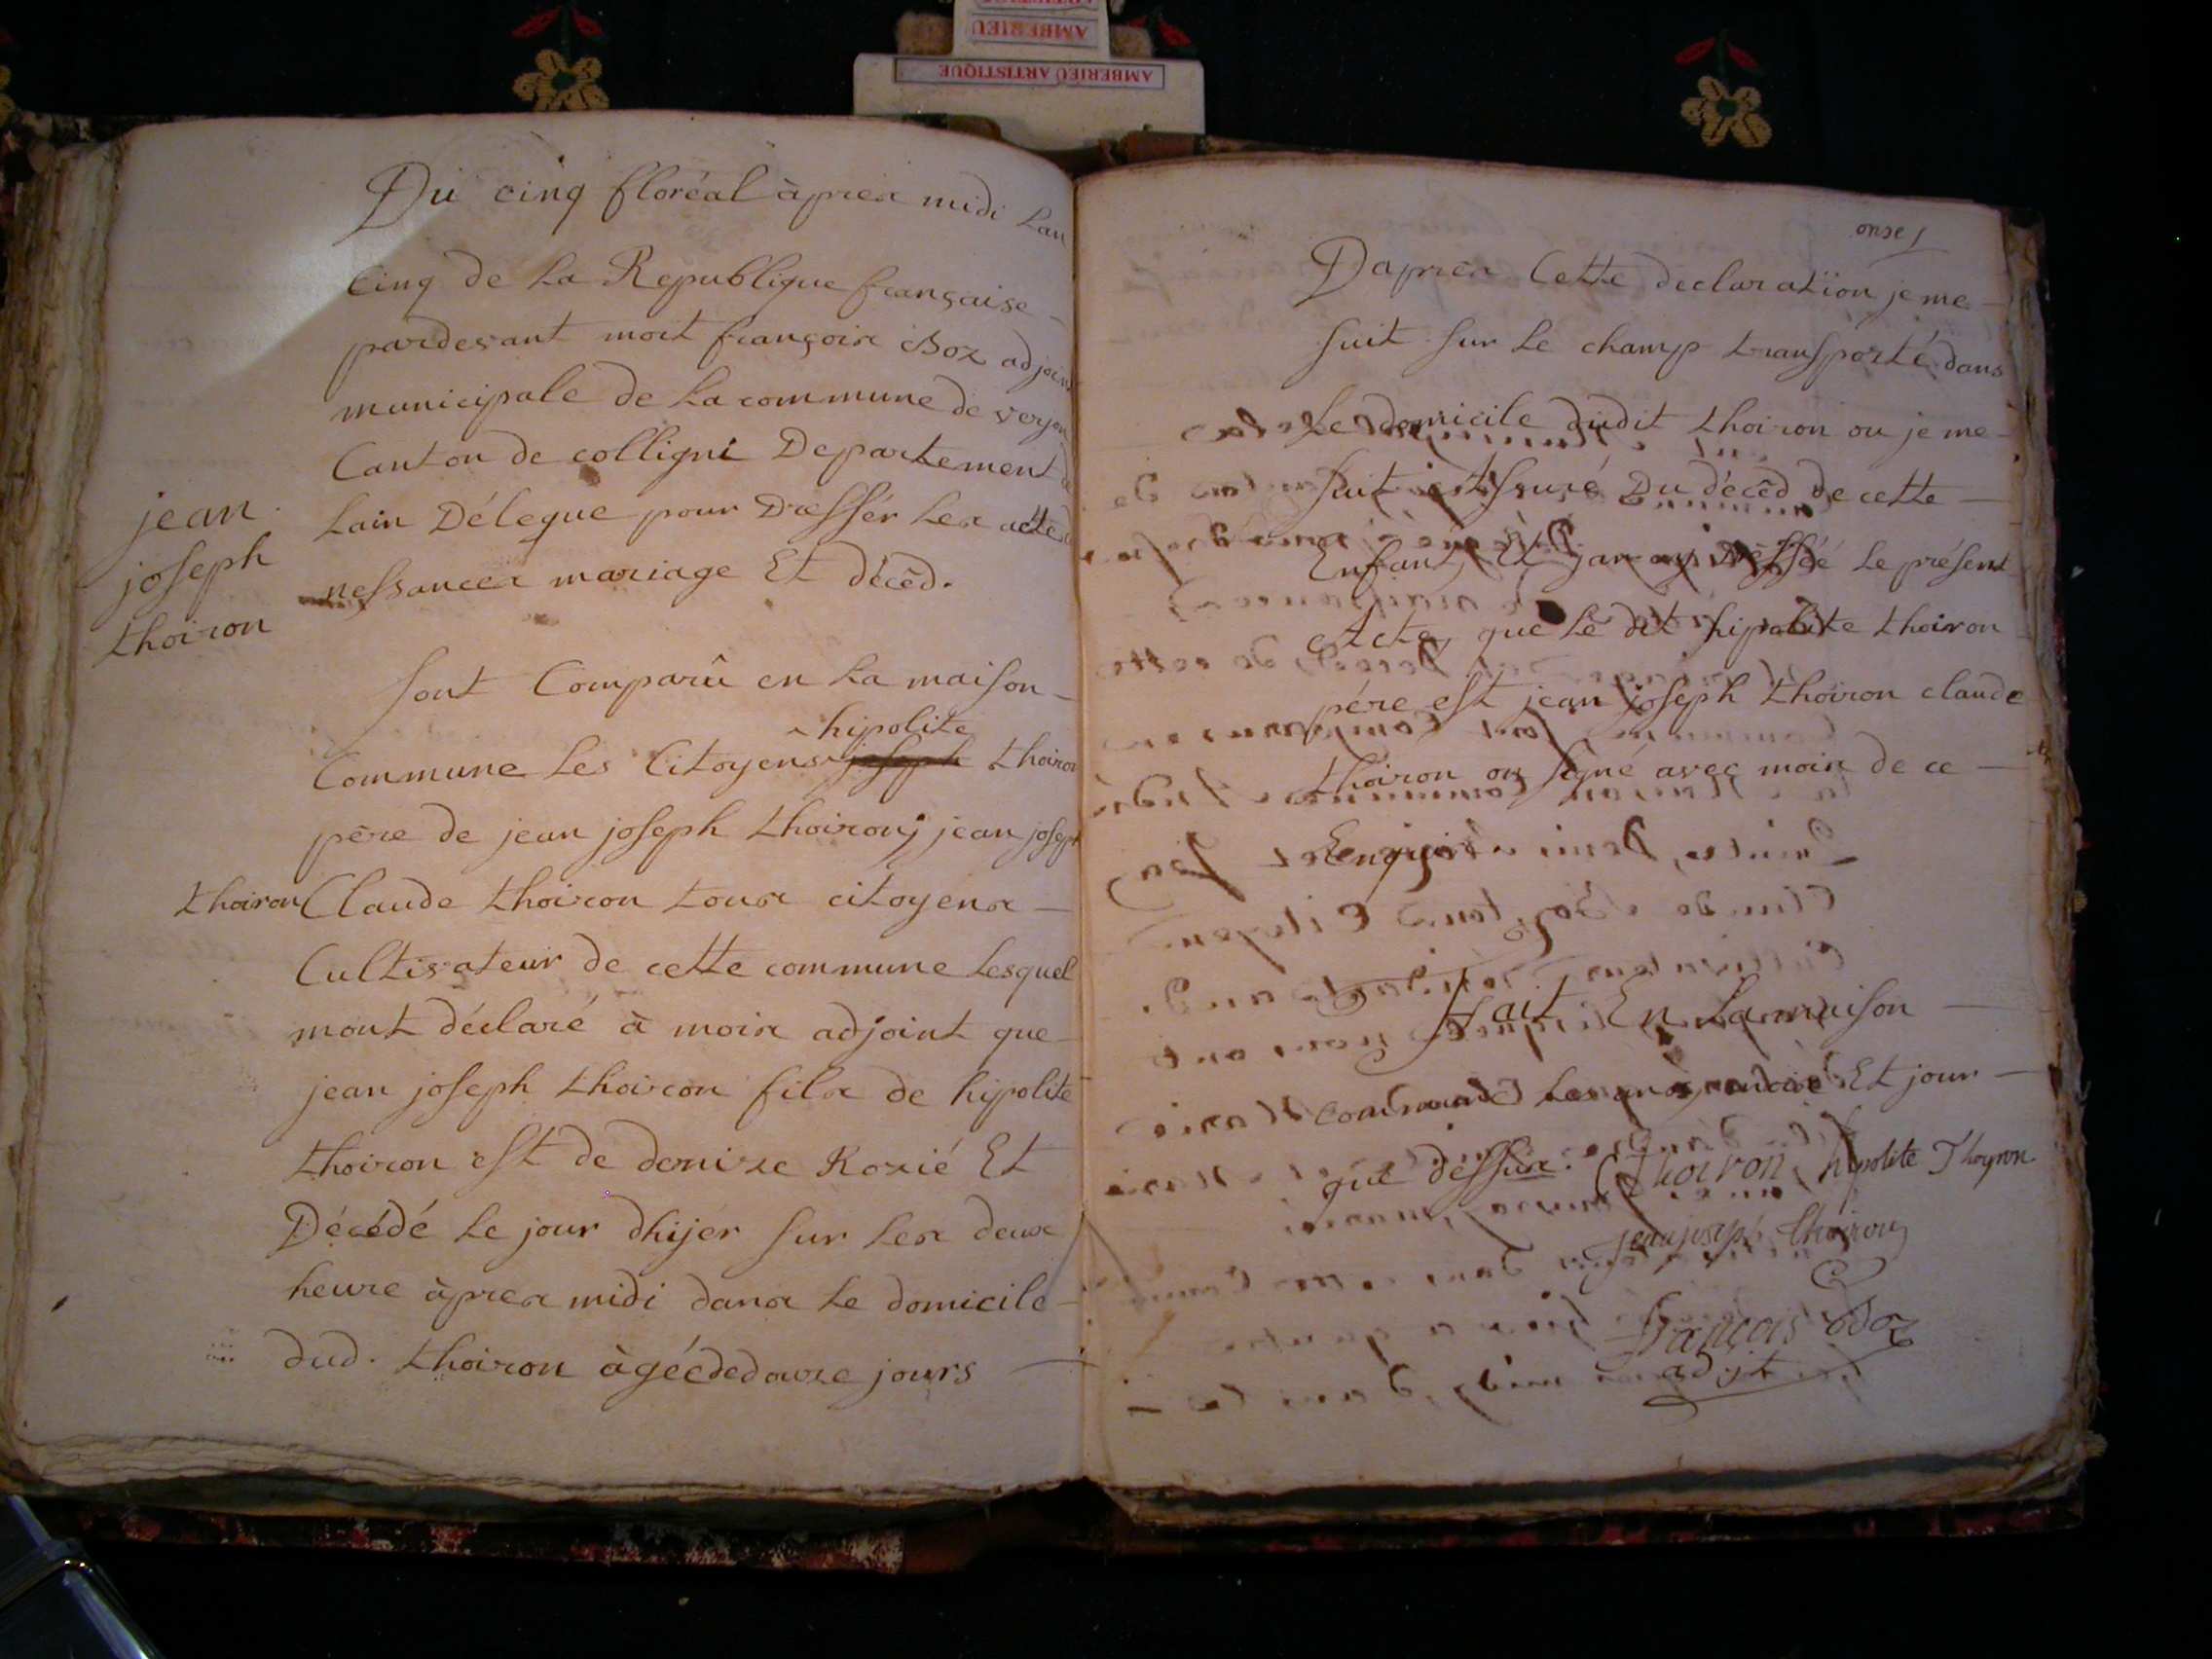 AMBERIEU
AMBERIEU ARTISTIQUE
Du cinq floréal àpres midi Lan
Cinq de La Republique française
pardevant moit françois Boz adjoint
municipale de La commune de verjon
Canton de colligni Departement de
Lain Délegue pour Dressér Les actes
nessances mariage Et décèd.
jean
joseph
thoiron
sont Comparû en La maison
hipolite
Commune Les Citoyens joseph thoiron
père de jean joseph thoiron; jean joseph
thoiron Claude thoiron tous citoyens
Cultivateur de cette commune Lesquel
mont déclaré à mois adjoint que
jean joseph thoiron fils de hipolite
thoiron est de denize Rozié Et
Décédé Le jour dhijer sur Les deux
heure àpres midi dans Le domicile
dud. thoiron àgéé de douze jours
onse
Dapres Cette declaration je me
suit sur Le champ transporté dans
Le domicile dudit thoiron ou je me
suit assuré Du décèd de cette
Enfant, Et jan ay Dressée Le présent
Acte, que Le dit hipolite thoiron
pére est jean joseph thoiron claude
thoiron on signé avec mois de ce
Enquis
Fait En La maison
commune Les ans, mois Et jour
que dessus. Thoiron hipolite Thoyron
jean joseph thoiron
François Boz
adjt